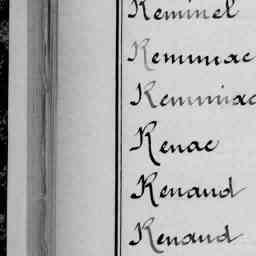 Keminel
Kemmae
Kemmiac
Renae
Renaud
Renaud